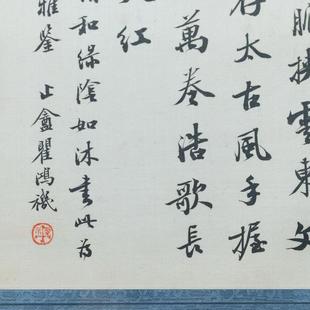 雲東文
存太古風手握
萬卷浩歌長
紅
和綠陰如沐書此為
雅鑒 止盦瞿鴻禨